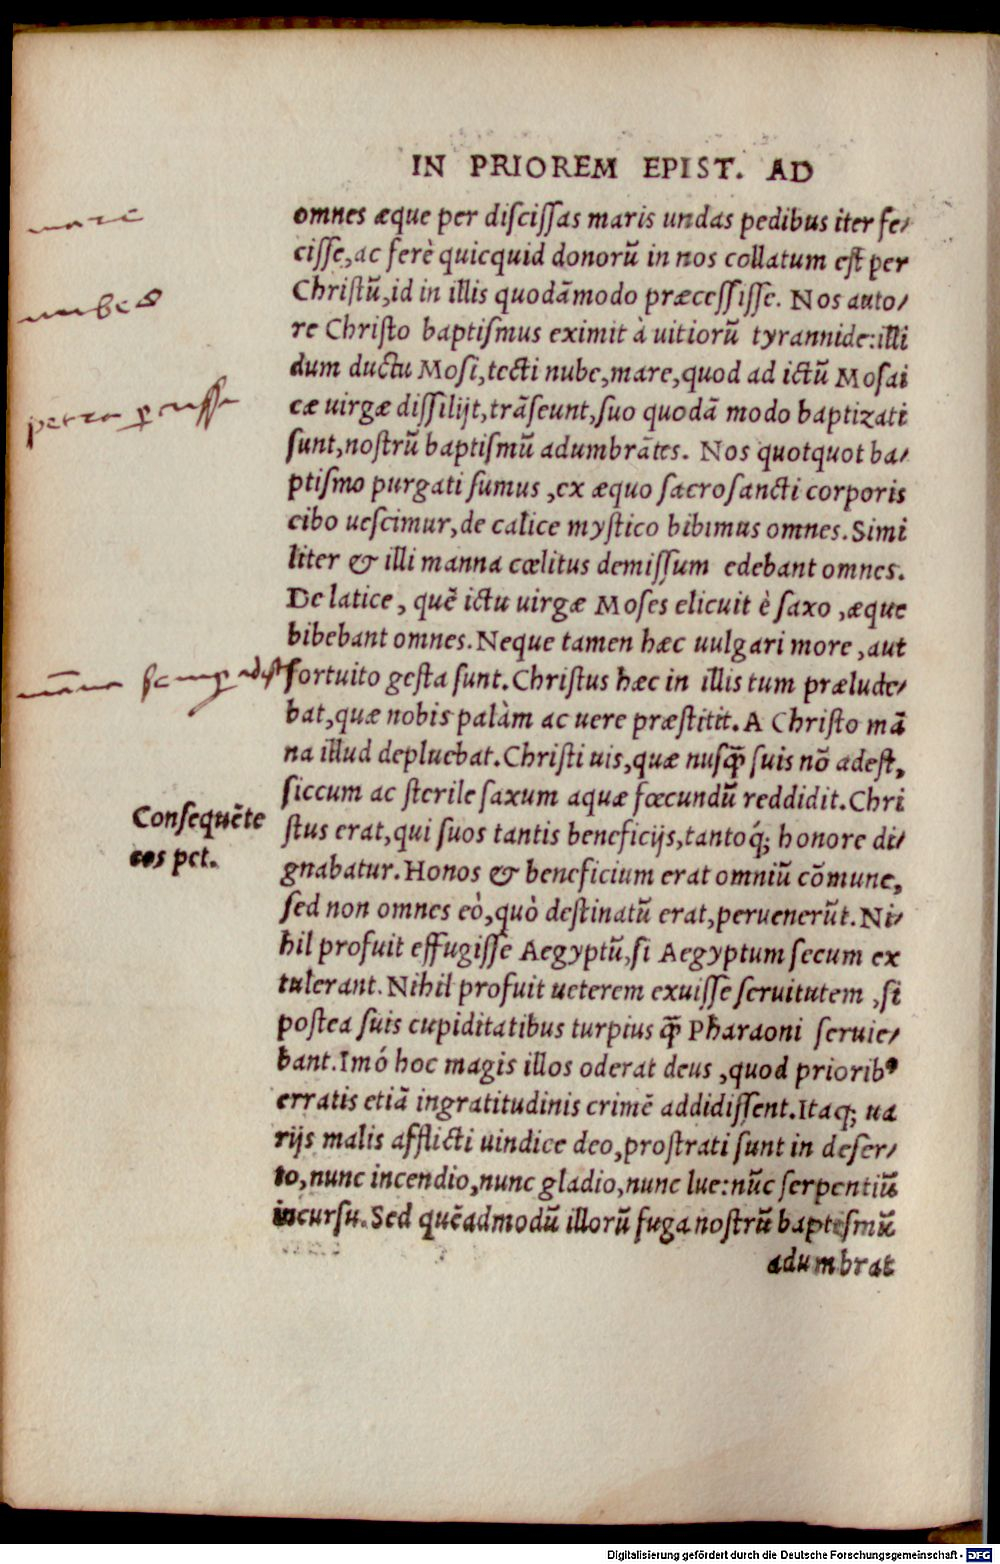 IN PRIOREM EPIST. AD
mare
omnes æque per discissas maris undas pedibus iter fe/
cisse, ac ferè quicquid donorū in nos collatum est per
nubes
Christū, id in illis quodāmodo præcessisse. Nos auto/
re Christo baptismus eximit à uitiorū tyrannide: illi
dum ductu Mosi, tecti nube, mare, quod ad ictū Mosai
petra percussa
cæ uirgæ dissilijt, trāseunt, suo quodā modo baptizati
sunt, nostrū baptismū adumbrātes. Nos quotquot ba/
ptismo purgati sumus, ex æquo sacrosancti corporis
cibo uescimur, de calice mystico bibimus omnes. Simi
liter & illi manna cœlitus demissum edebant omnes.
De latice, quē ictu uirgæ Moses elicuit è saxo, æque
bibebant omnes. Neque tamen hæc uulgari more, aut
māna semper adest
fortuito gesta sunt. Christus hæc in illis tum prælude/
bat, quæ nobis palàm ac uere præstitit. A Christo mā
na illud depluebat. Christi uis, quæ nusq̄ suis nō adest,
siccum ac sterile saxum aquæ fœcundū reddidit. Chri
Consequēte
eos pet.
stus erat, qui suos tantis beneficijs, tantoq́; honore di/
gnabatur. Honos & beneficium erat omniū cōmune,
sed non omnes eò, quò destinatū erat, peruenerūt. Ni/
hil profuit effugisse Aegyptū, si Aegyptum secum ex
tulerant. Nihil profuit ueterem exuisse seruitutem, si
postea suis cupiditatibus turpius q̄ Pharaoni seruie/
bant. Imó hoc magis illos oderat deus, quod priorib⁹
erratis etiā ingratitudinis crimē addidissent. Itaq; ua
rijs malis afflicti uindice deo, prostrati sunt in deser/
to, nunc incendio, nunc gladio, nunc lue: nūc serpentiū
incursu. Sed quēadmodū illorū fuga nostrū baptismū
adumbrat
Digitalisierung gefördert durch die Deutsche Forschungsgemeinschaft - DFG